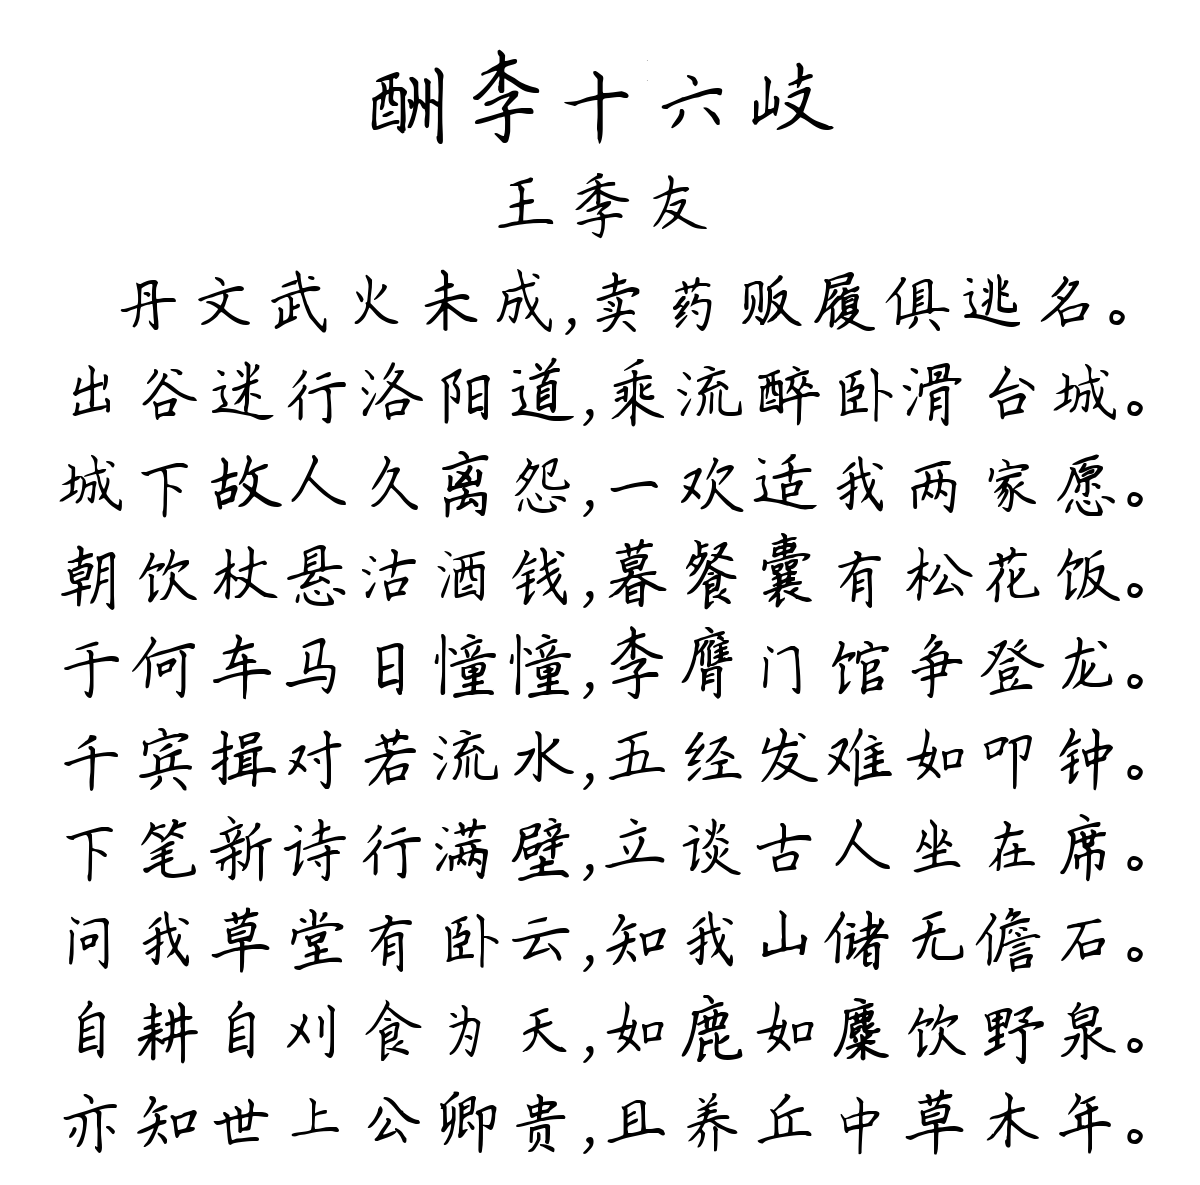 酬李十六岐
王季友
丹文武火未成,卖药贩履俱逃名。
出谷迷行洛阳道,乘流醉卧滑台城。
城下故人久离怨,一欢适我两家愿。
朝饮杖悬沽酒钱,暮餐囊有松花饭。
于何车马日憧憧,李膺门馆争登龙。
千宾揖对若流水,五经发难如叩钟。
下笔新诗行满壁,立谈古人坐在席。
问我草堂有卧云,知我山储无儋石。
自耕自刈食为天,如鹿如麋饮野泉。
亦知世上公卿贵,且养丘中草木年。